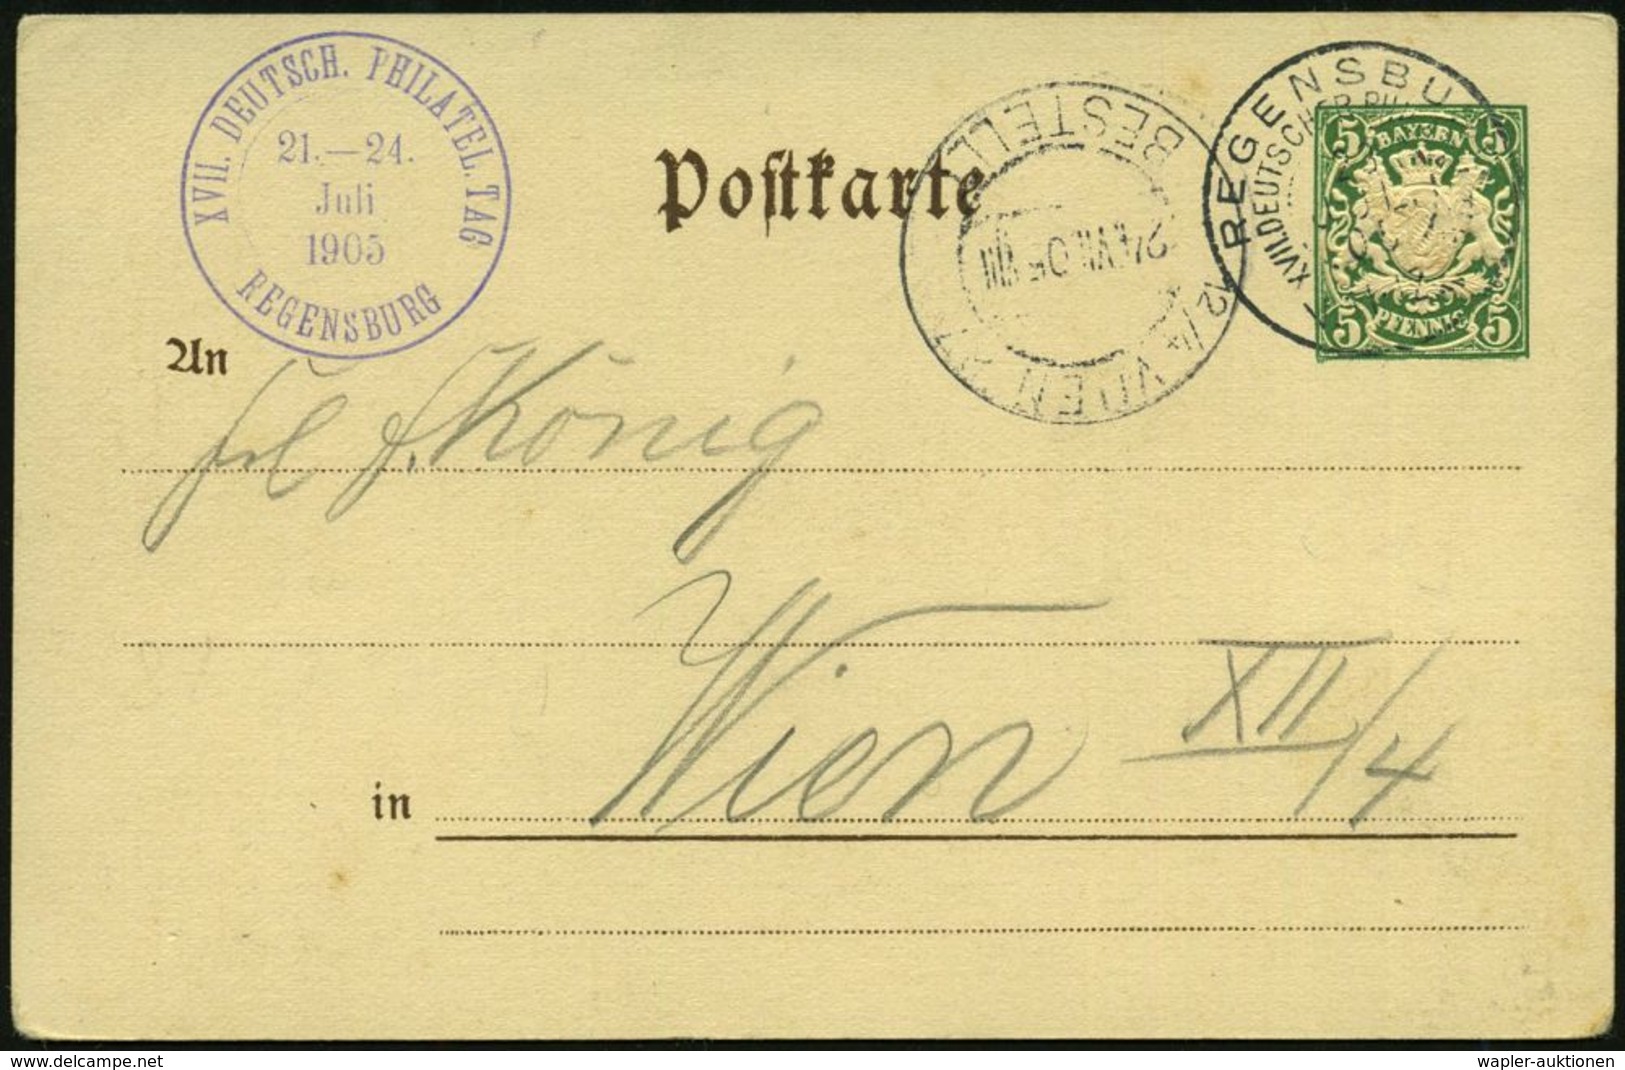 XVII. DEUTSCH. PHILATEL. TAG
21.—24.
Juli
1905
REGENSBURG
Postkarte
BESTELL
24.VII.05 VIII
12/4 WIEN
REGENSBU
XVII. DEUTSCHER PH
5 BAYERN 5
5 PFENNIG 5
An
Frl F. König
in Wien XII/4
delcampe.net
wapler-auktionen